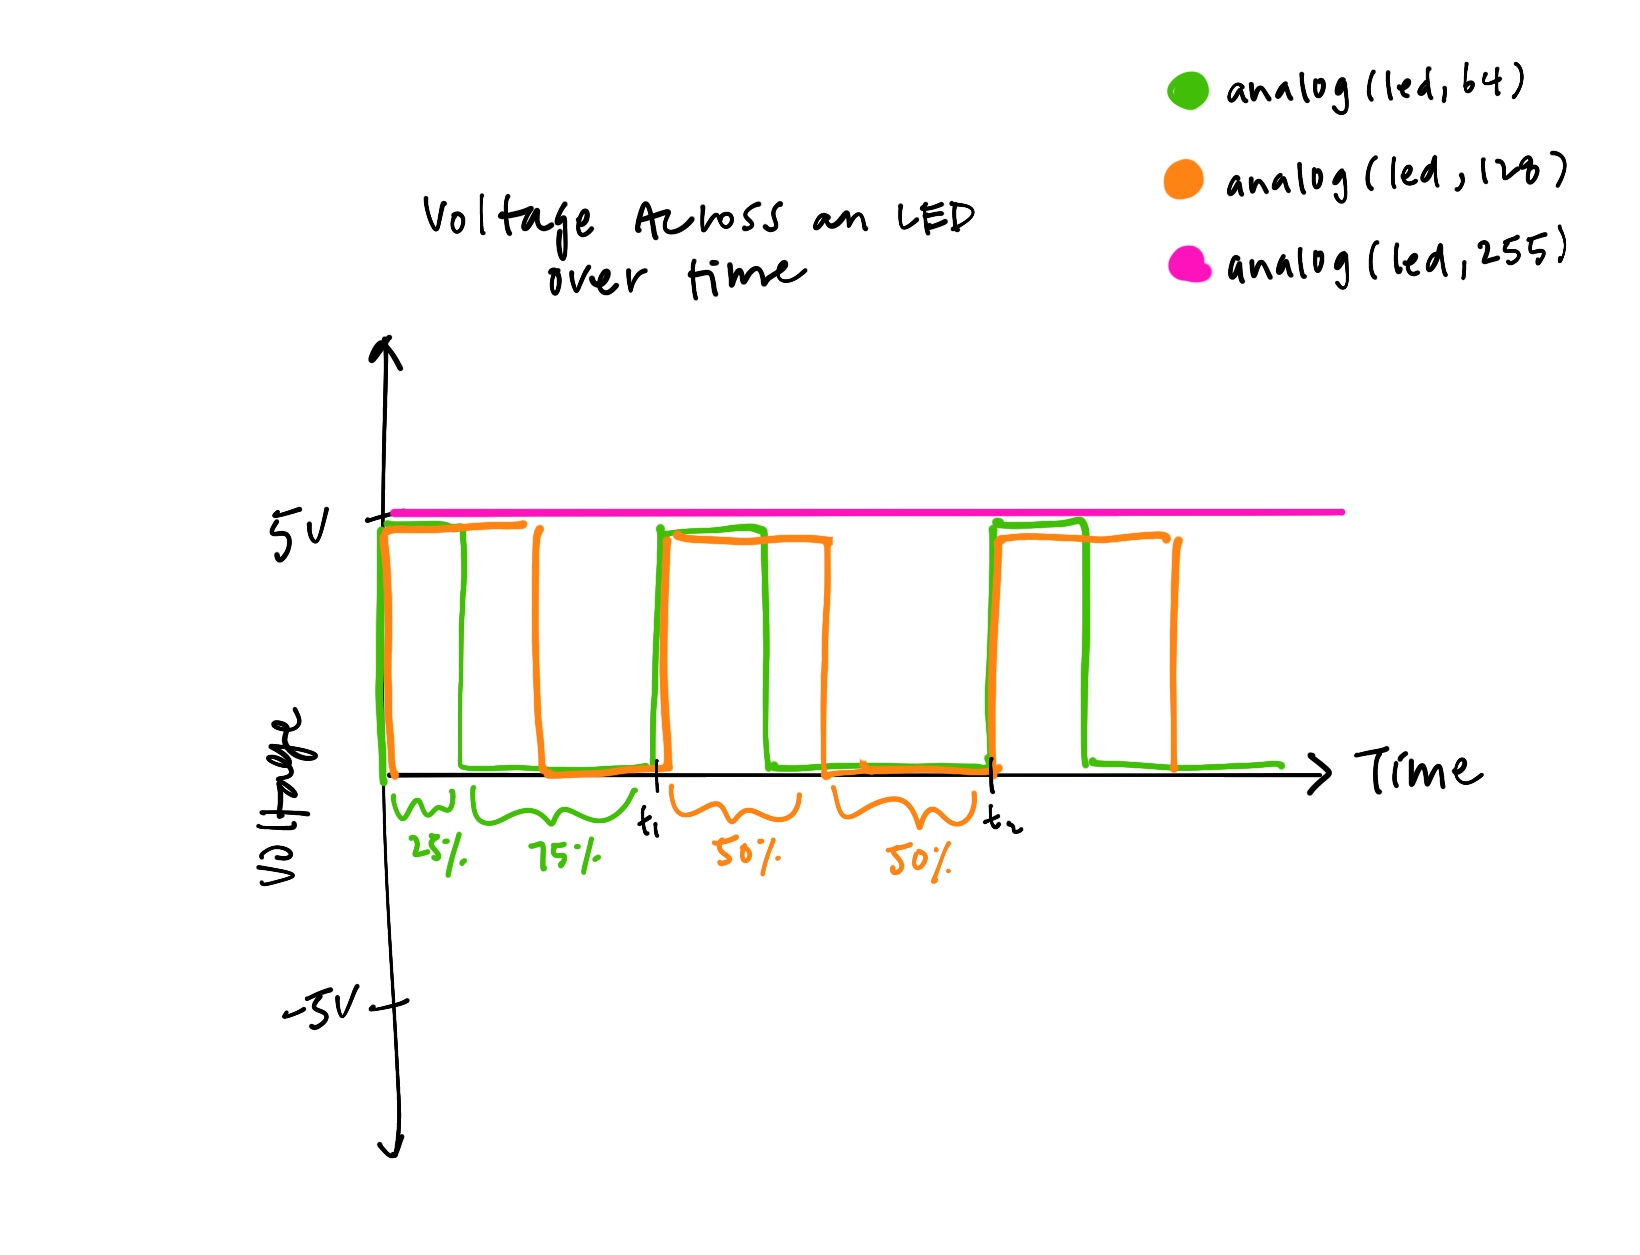 analog(led, 64)
analog(led, 128)
analog(led, 255)
Voltage Across an LED
over time
5V
Voltage
Time
t1
t2
25%
75%
50%
50%
-5V